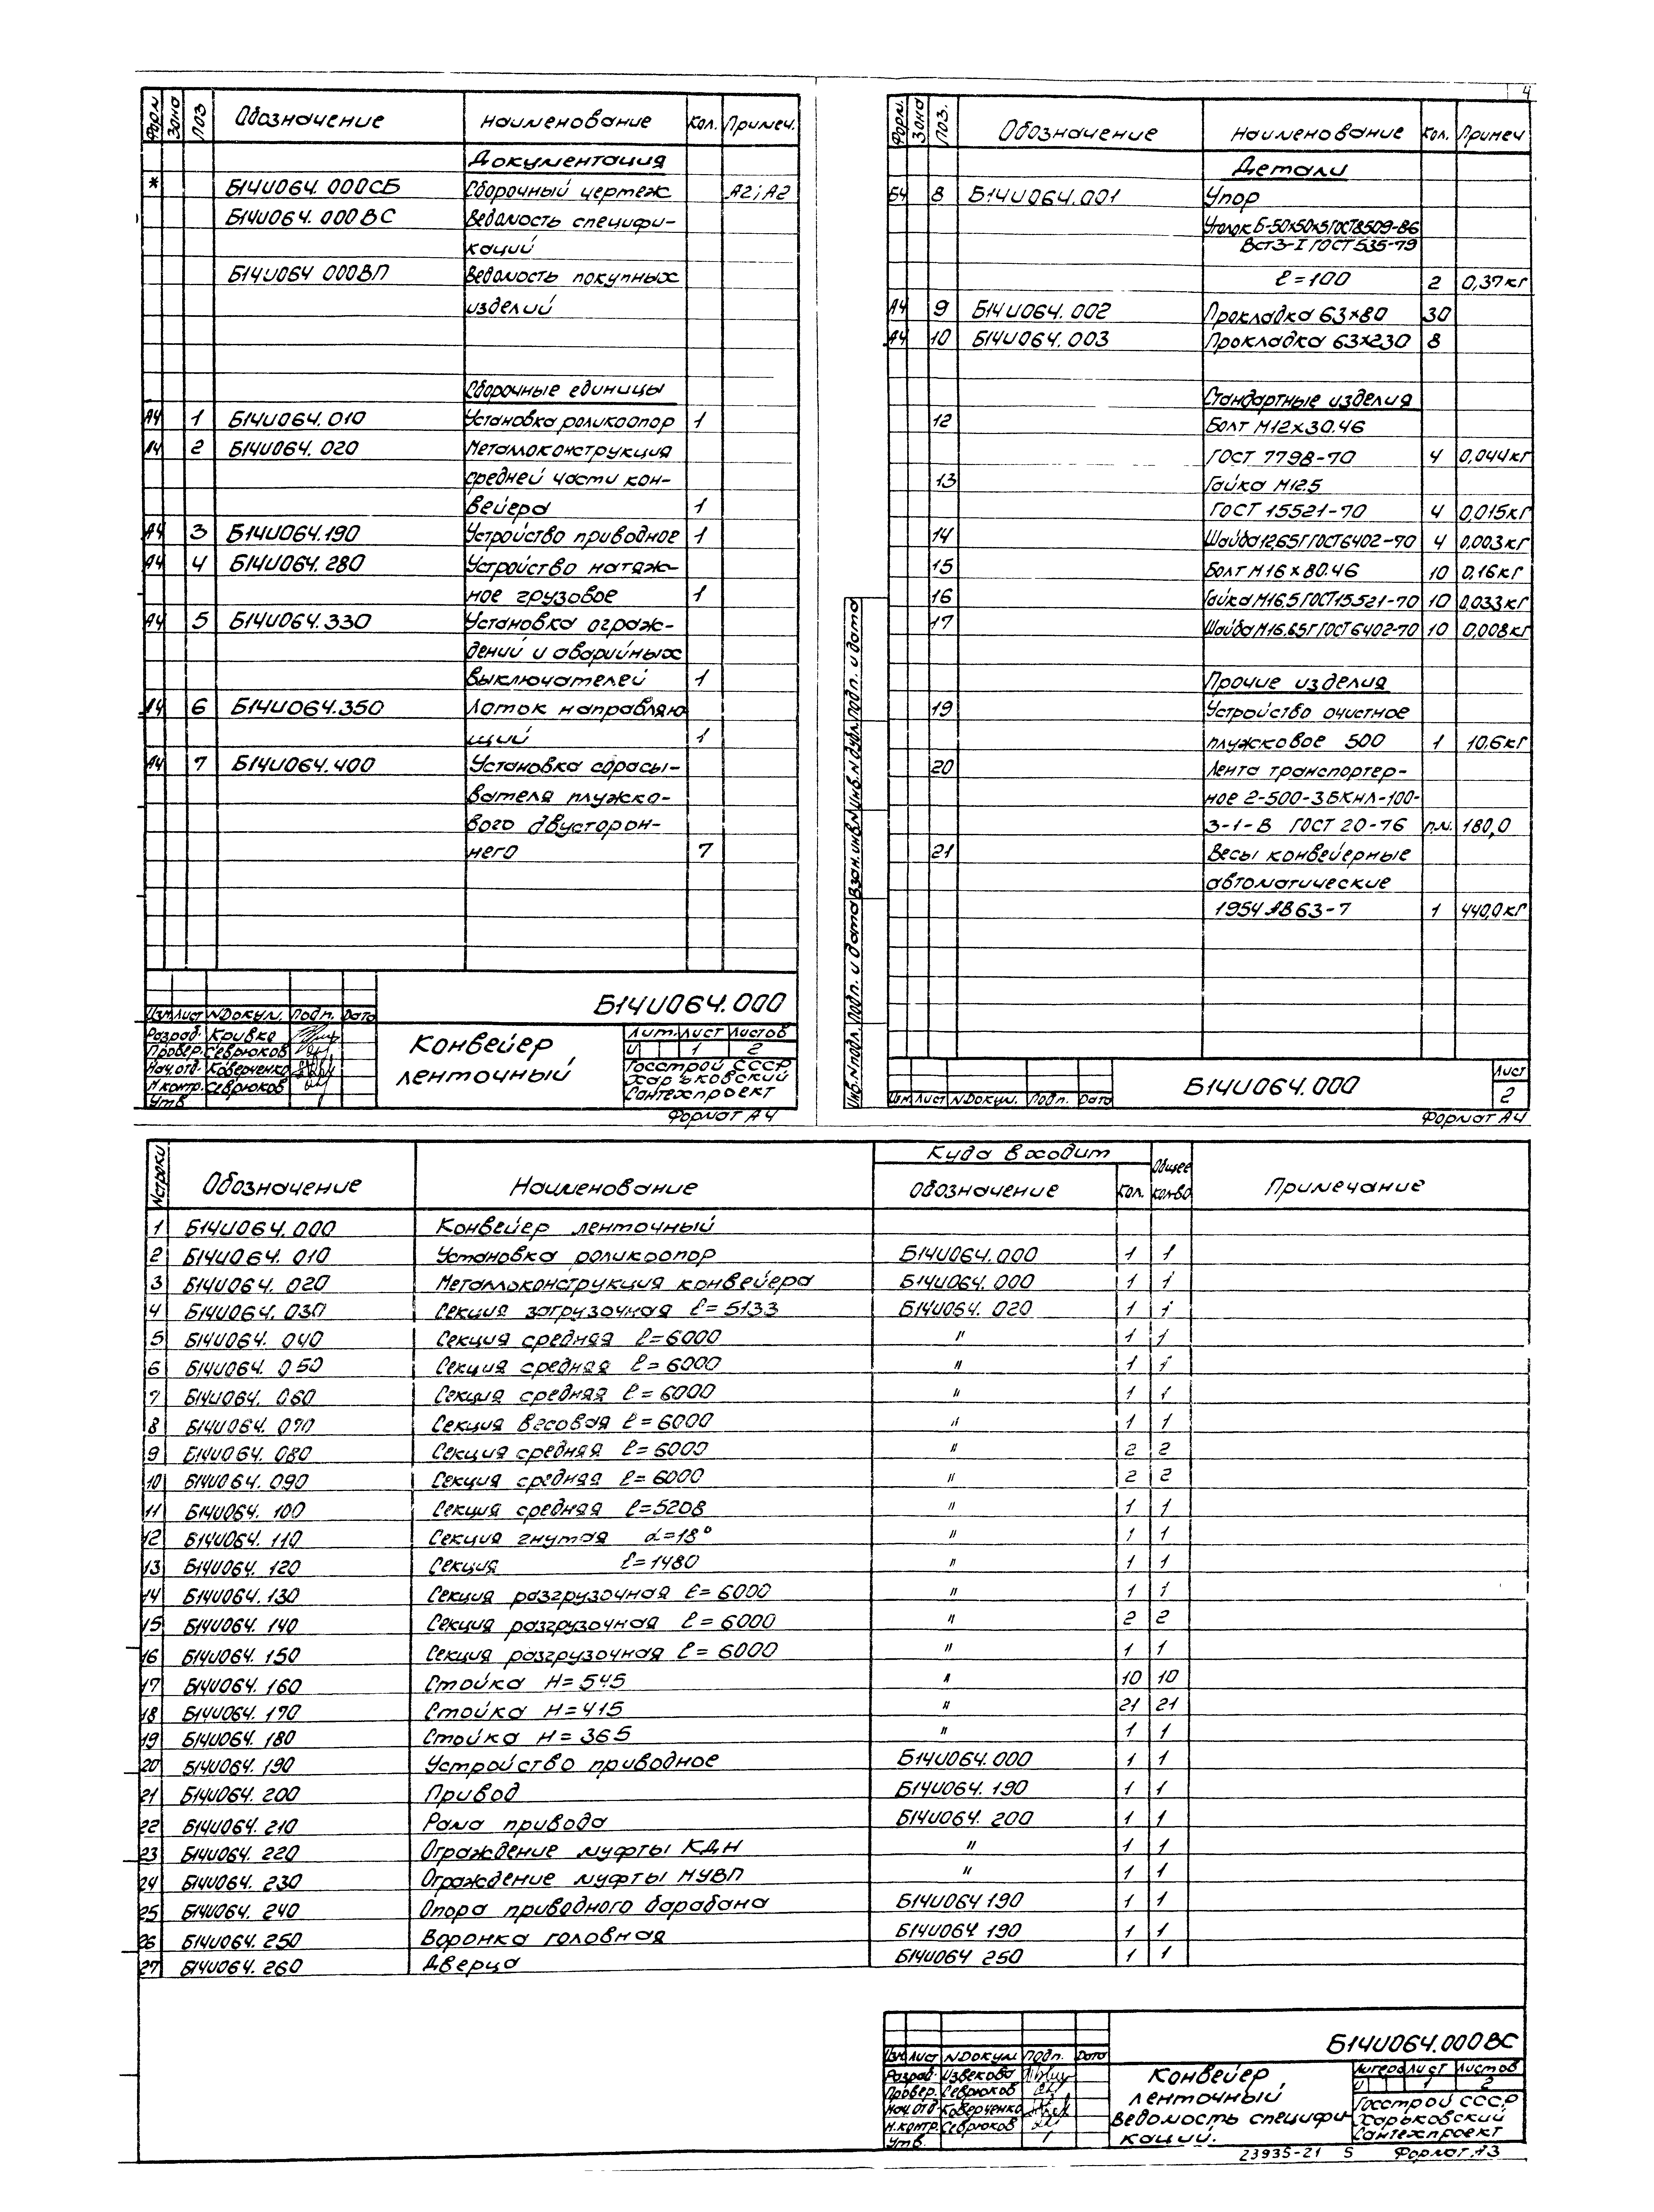 4
Форм. Зона Поз. Обозначение Наименование Кол. Примеч.
Документация
* Б14И064.000СБ Сборочный чертеж А2; А2
Б14И064.000ВС Ведомость специфи-
каций
Б14И064 000ВП Ведомость покупных
изделий
Сборочные единицы
А4 1 Б14И064.010 Установка роликоопор 1
А4 2 Б14И064.020 Металлоконструкция
средней части кон-
вейера 1
А4 3 Б14И064.190 Устройство приводное 1
А4 4 Б14И064.280 Устройство натяж-
ное грузовое 1
А4 5 Б14И064.330 Установка ограж-
дений и аварийных
выключателей 1
А4 6 Б14И064.350 Лоток направляю
щий 1
А4 7 Б14И064.400 Установка сбрасы-
вателя плужко-
вого двусторон-
него 7
Б14И064.000
Изм Лист №Докум. Подп. Дата
Разраб. Кривко
Провер. Севрюков
Нач.отд. Коверченко
Н.контр. Севрюков
Утв
Конвейер
ленточный
Лит. Лист Листов
И 1 2
Госстрой СССР
Харьковский
Сантехпроект
Формат А4
Форм. Зона Поз. Обозначение Наименование Кол. Примеч
Детали
БЧ 8 Б14И064.001 Упор
Уголок Б-50х50х5 ГОСТ8509-86
ВСт3-I ГОСТ 535-79
ℓ=100 2 0,37кг
А4 9 Б14И064.002 Прокладка 63х80 30
А4 10 Б14И064.003 Прокладка 63х230 8
Стандартные изделия
12 Болт М12х30.46
ГОСТ 7798-70 4 0,044кг
13 Гайка М12.5
ГОСТ 15521-70 4 0,015кг
14 Шайба 12.65Г ГОСТ6402-70 4 0,003кг
15 Болт М16х80.46 10 0,16кг
16 Гайка М16.5 ГОСТ15521-70 10 0,033кг
17 Шайба М16.65Г ГОСТ6402-70 10 0,008кг
Прочие изделия
19 Устройство очистное
плужковое 500 1 10.6кг
20 Лента транспортер-
ное 2-500-3БКНЛ-100-
3-1-В ГОСТ 20-76 п.м. 180,0
21 Весы конвейерные
автоматические
1954 АВ63-7 1 440,0кг
Инв.№подл. Подп. и дата Взам.инв.№ Инв.№дубл. Подп. и дата
Изм Лист №Докум. Подп. Дата
Б14И064.000
Лист
2
Формат А4
№строки Обозначение Наименование Куда входит Общее кол-во Примечание
Обозначение Кол.
1 Б14И064.000 Конвейер ленточный
2 Б14И064.010 Установка роликоопор Б14И064.000 1 1
3 Б14И064.020 Металлоконструкция конвейера Б14И064.000 1 1
4 Б14И064.030 Секция загрузочная ℓ=5133 Б14И064.020 1 1
5 Б14И064.040 Секция средняя ℓ=6000 " 1 1
6 Б14И064.050 Секция средняя ℓ=6000 " 1 1
7 Б14И064.060 Секция средняя ℓ=6000 " 1 1
8 Б14И064.070 Секция весовая ℓ=6000 " 1 1
9 Б14И064.080 Секция средняя ℓ=6000 " 2 2
10 Б14И064.090 Секция средняя ℓ=6000 " 2 2
11 Б14И064.100 Секция средняя ℓ=5208 " 1 1
12 Б14И064.110 Секция гнутая α=18° " 1 1
13 Б14И064.120 Секция ℓ=1480 " 1 1
14 Б14И064.130 Секция разгрузочная ℓ=6000 " 1 1
15 Б14И064.140 Секция разгрузочная ℓ=6000 " 2 2
16 Б14И064.150 Секция разгрузочная ℓ=6000 " 1 1
17 Б14И064.160 Стойка Н=545 " 10 10
18 Б14И064.170 Стойка Н=415 " 21 21
19 Б14И064.180 Стойка Н=365 " 1 1
20 Б14И064.190 Устройство приводное Б14И064.000 1 1
21 Б14И064.200 Привод Б14И064.190 1 1
22 Б14И064.210 Рама привода Б14И064.200 1 1
23 Б14И064.220 Ограждение муфты КДН " 1 1
24 Б14И064.230 Ограждение муфты МУВП " 1 1
25 Б14И064.240 Опора приводного барабана Б14И064 190 1 1
26 Б14И064.250 Воронка головная Б14И064 190 1 1
27 Б14И064.260 Дверца Б14И064 250 1 1
Б14И064.000ВС
Изм Лист №Докум. Подп. Дата
Разраб. Извекова
Провер. Севрюков
Нач.отд Коверченко
Н.контр. Севрюков
Утв.
Конвейер
ленточный
Ведомость специфи-
каций.
Литера Лист Листов
И 1 2
Госстрой СССР
Харьковский
Сантехпроект
23935-21 5 Формат А3